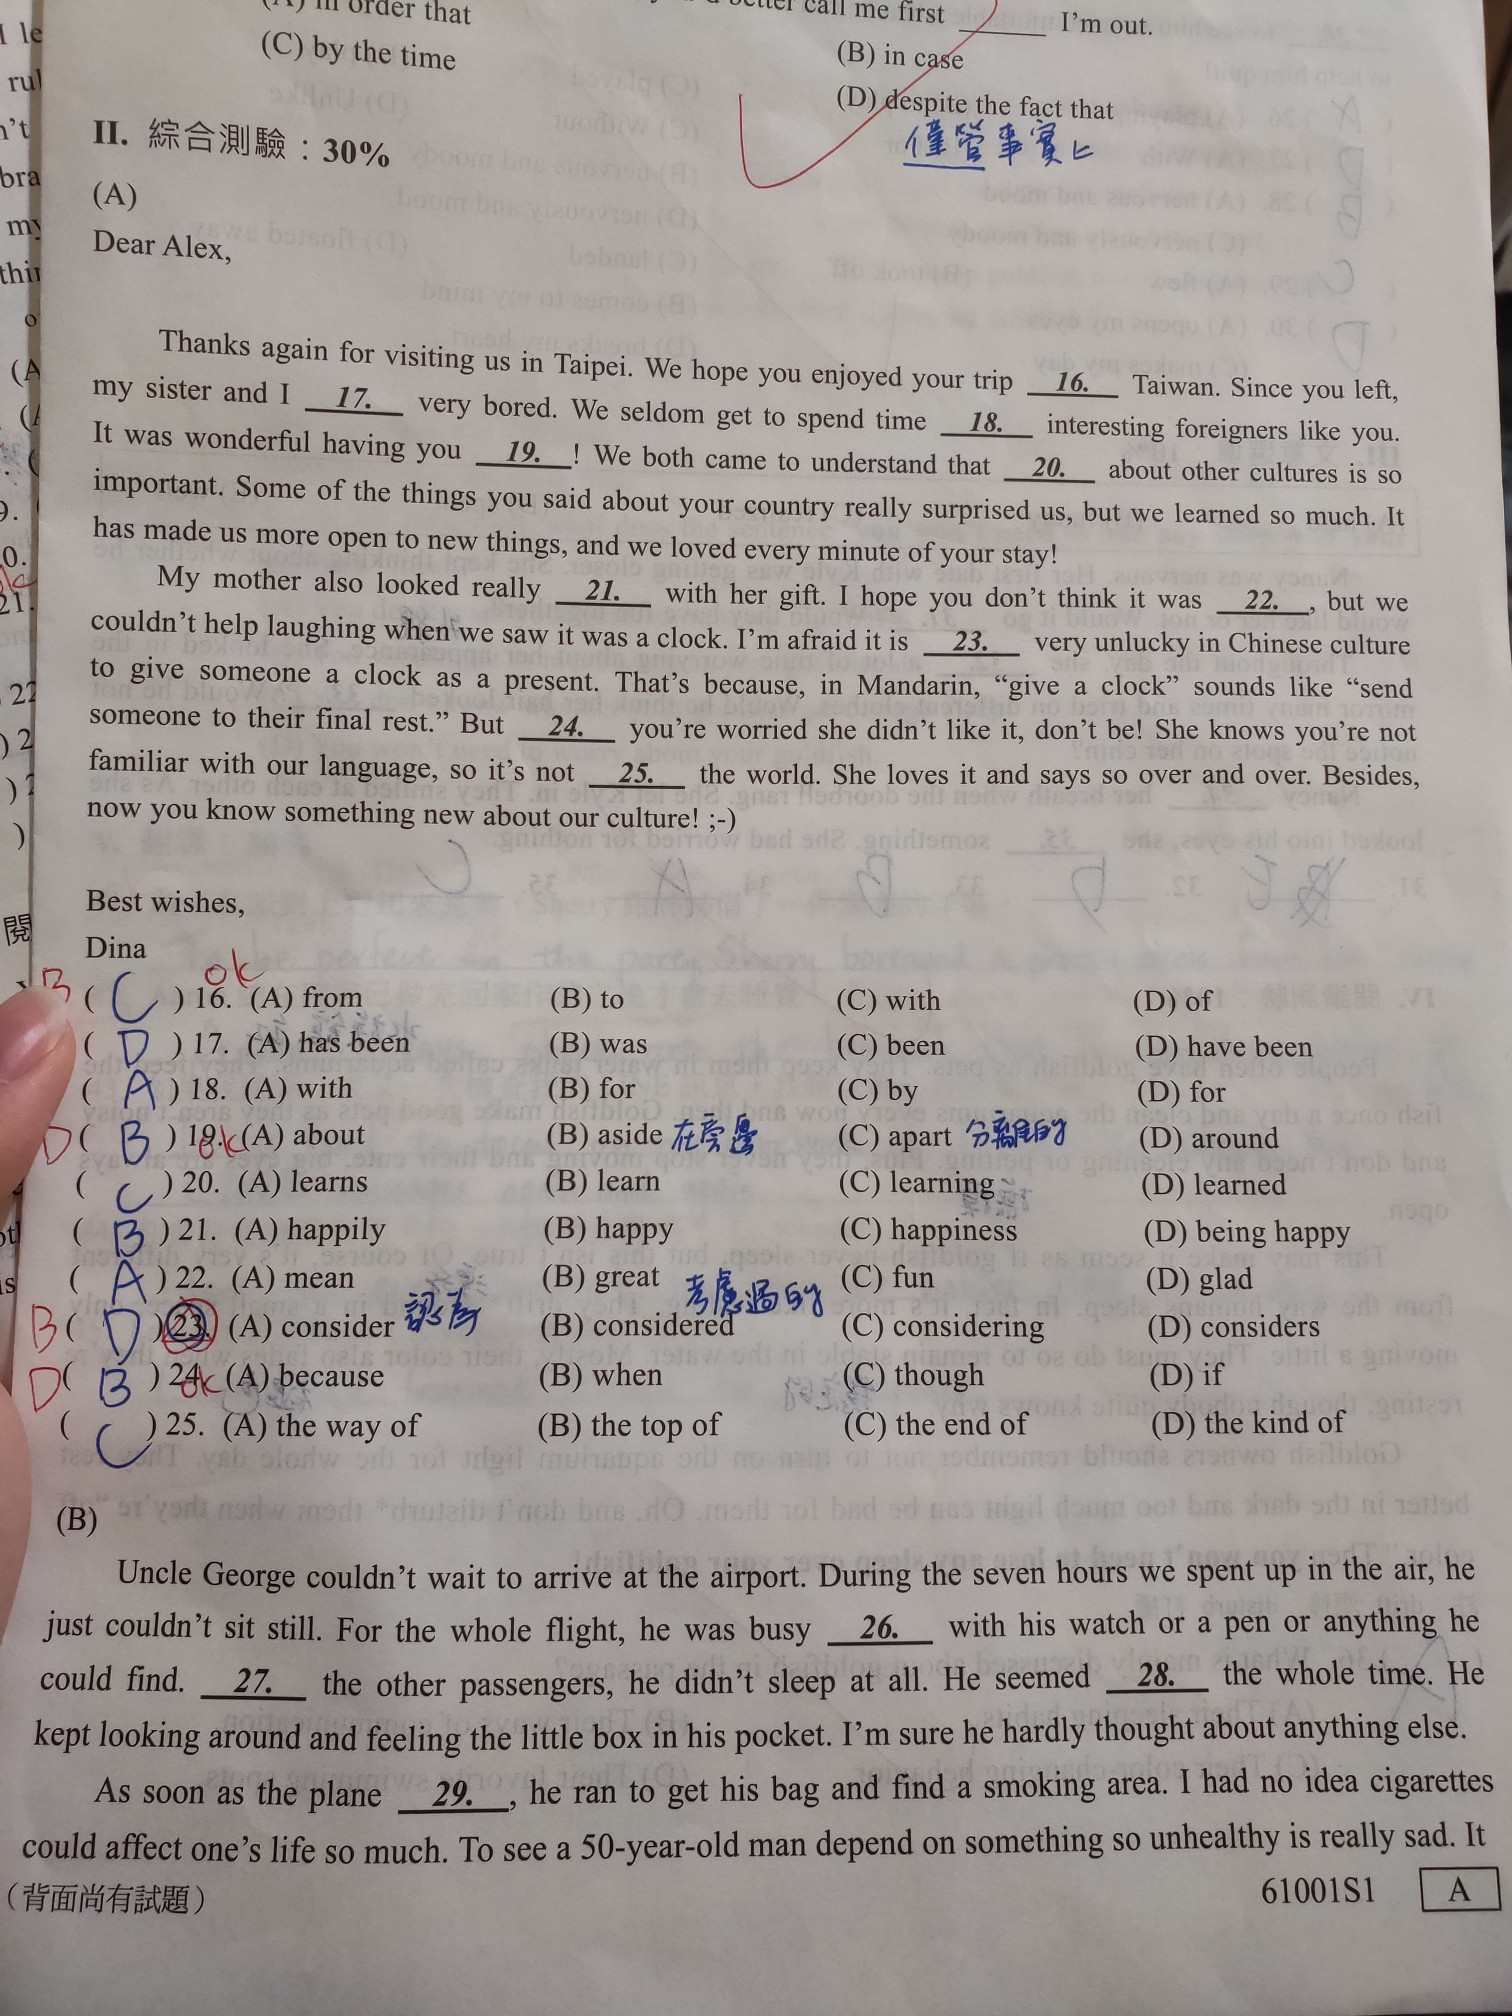 in order that
better call me first ______ I'm out.
(C) by the time
(B) in case
(D) despite the fact that
僅管事實上
II. 綜合測驗：30%
(A)
Dear Alex,
Thanks again for visiting us in Taipei. We hope you enjoyed your trip 16. Taiwan. Since you left,
my sister and I 17. very bored. We seldom get to spend time 18. interesting foreigners like you.
It was wonderful having you 19. ! We both came to understand that 20. about other cultures is so
important. Some of the things you said about your country really surprised us, but we learned so much. It
has made us more open to new things, and we loved every minute of your stay!
My mother also looked really 21. with her gift. I hope you don't think it was 22. , but we
couldn't help laughing when we saw it was a clock. I'm afraid it is 23. very unlucky in Chinese culture
to give someone a clock as a present. That's because, in Mandarin, “give a clock” sounds like “send
someone to their final rest.” But 24. you're worried she didn't like it, don't be! She knows you're not
familiar with our language, so it's not 25. the world. She loves it and says so over and over. Besides,
now you know something new about our culture! ;-)
Best wishes,
Dina
ok
B ( C ) 16. (A) from (B) to (C) with (D) of
( D ) 17. (A) has been (B) was (C) been (D) have been
( A ) 18. (A) with (B) for (C) by (D) for
D ( B ) 19. ok (A) about (B) aside 在旁邊 (C) apart 分離的 (D) around
( C ) 20. (A) learns (B) learn (C) learning (D) learned
( B ) 21. (A) happily (B) happy (C) happiness (D) being happy
( A ) 22. (A) mean (B) great (C) fun (D) glad
B ( D ) 23. (A) consider 認為 (B) considered 考慮過的 (C) considering (D) considers
D ( B ) 24. ok (A) because (B) when (C) though (D) if
( C ) 25. (A) the way of (B) the top of (C) the end of (D) the kind of
(B)
Uncle George couldn't wait to arrive at the airport. During the seven hours we spent up in the air, he
just couldn't sit still. For the whole flight, he was busy 26. with his watch or a pen or anything he
could find. 27. the other passengers, he didn't sleep at all. He seemed 28. the whole time. He
kept looking around and feeling the little box in his pocket. I'm sure he hardly thought about anything else.
As soon as the plane 29. , he ran to get his bag and find a smoking area. I had no idea cigarettes
could affect one's life so much. To see a 50-year-old man depend on something so unhealthy is really sad. It
（背面尚有試題）
61001S1 A